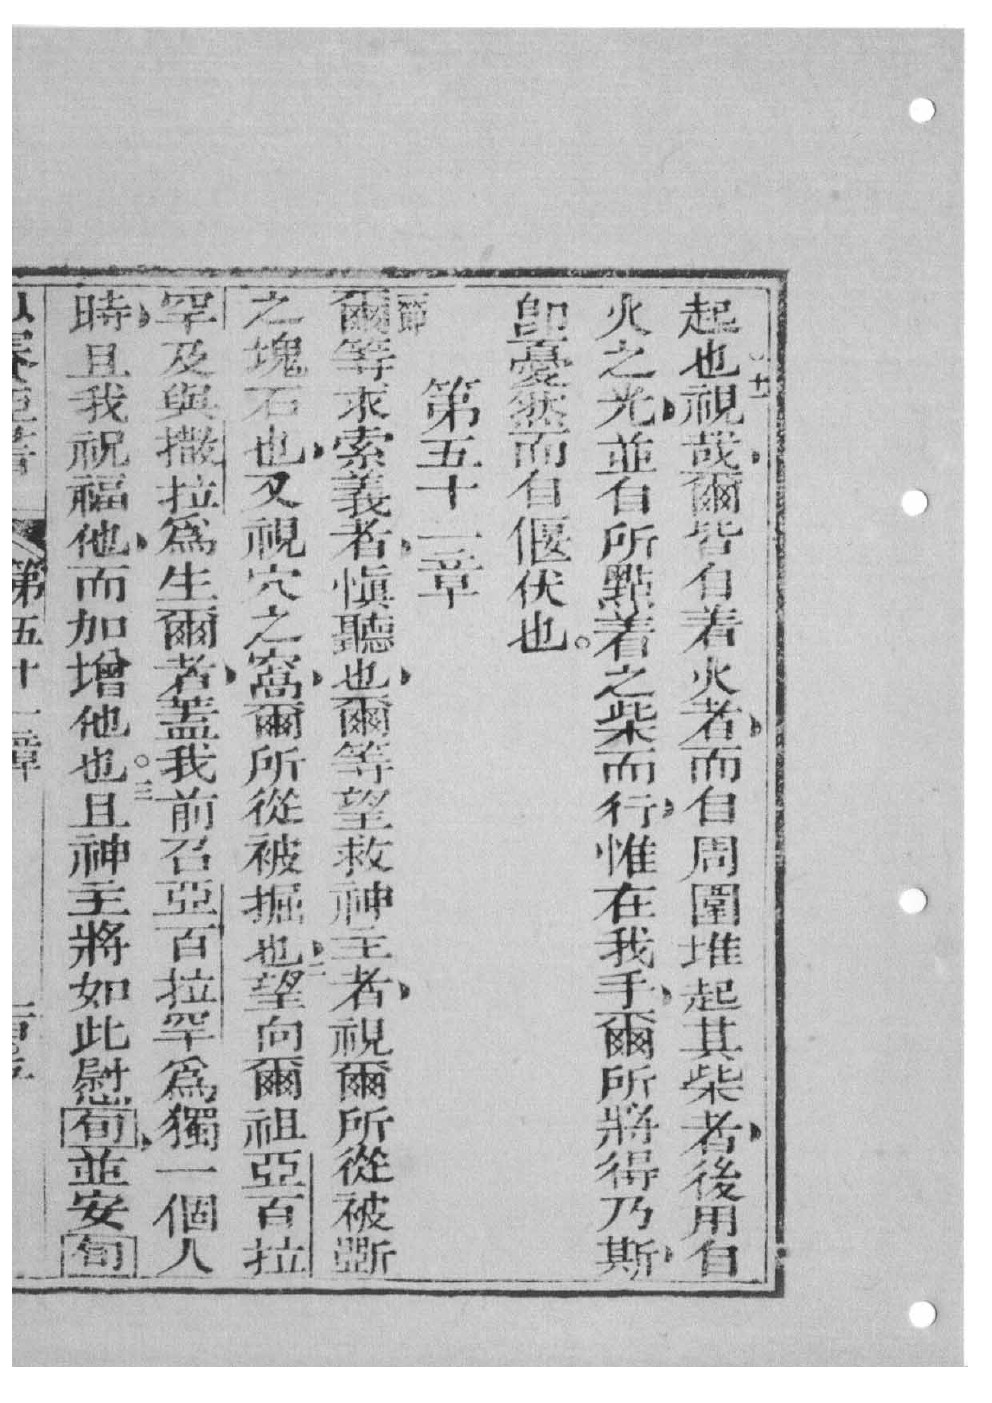 十一
起也視哉爾皆自着火者而自周圍堆起其柴者後用自
火之光並自所點着之柴而行惟在我手爾所將得乃斯
卽憂然而自偃伏也。
第五十一章
一節
爾等求索義者愼聽也爾等望救神主者視爾所從被斲
之塊石也又視穴之窩爾所從被掘也二望向爾祖亞百拉
罕及與撒拉爲生爾者蓋我前召亞百拉罕爲獨一個人
時且我祝福他而加增他也。三且神主將如此慰旬並安旬
第五十一章